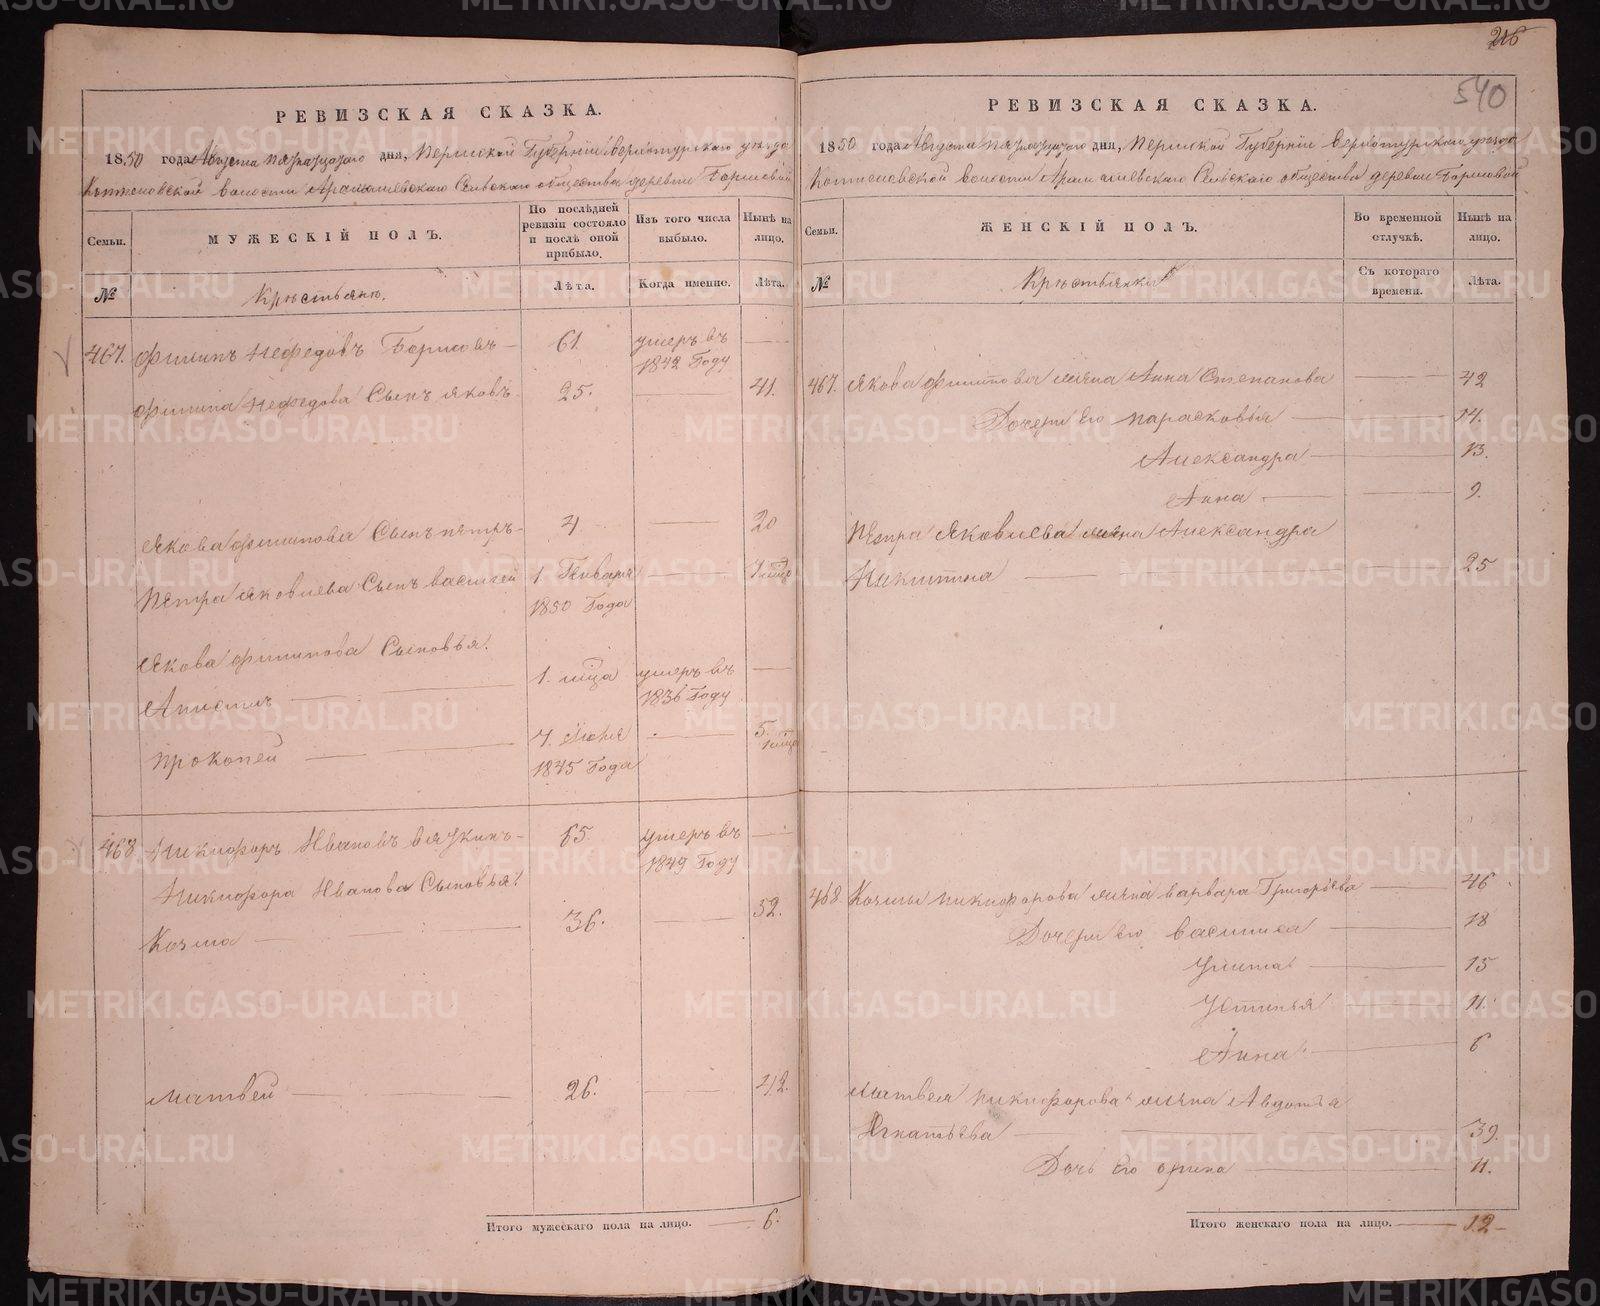 216
540
РЕВИЗСКАЯ СКАЗКА.
1850 года Августа пятнадцатого дня, Пермской Губернiи Верхотурскаго уѣзда
волости Арамашевскаго Сельскаго общества деревни
Семьи.
МУЖЕСКIЙ ПОЛЪ.
По послѣдней ревизiи состояло и послѣ оной прибыло.
Изъ того числа выбыло.
Нынѣ на лицо.
№
Крестьяне.
Лѣта.
Когда именно.
Лѣта.
467. Филипъ Нефедовъ 61. умеръ въ
1842 Году
Филипа Нефедова Сынъ Яковъ 25. 41.
Якова Филипова Сынъ Петръ 4 20
Петра Яковлева Сынъ Василей 1. Генваря
1850 Года
Якова Филипова Сыновья:
1. мца умеръ въ
1836 Году
Прокопей 7. Iюня 5.
1845 Года
468 Никифоръ Ивановъ Вяткинъ 65. умеръ въ
1849 Году
Никифора Иванова Сыновья:
Козма 36. 52.
Матвей 26. 42.
Итого мужескаго пола на лицо. 6.
РЕВИЗСКАЯ СКАЗКА.
1850 года Августа пятнадцатаго дня, Пермской Губернiи Верхотурскаго уѣзда
волости Арамашевскаго Сельскаго общества деревни
Семьи.
ЖЕНСКIЙ ПОЛЪ.
Во временной отлучкѣ.
Нынѣ на лицо.
№
Крестьянки
Съ котораго времени.
Лѣта.
467. Якова Филипова жена Анна Степанова 42
Дочери его Парасковья 14.
Александра 13.
Анна 9.
Петра Яковлева жена Александра
Никитина 25
468. Козмы Никифорова жена Варвара Григорьева 46
Дочери его Василиса 18
Улита 15
Устинья 11.
Анна 6
Матвея Никифорова жена Авдотья
Игнатьева 39.
Дочь его Орина 11.
Итого женскаго пола на лицо. 12
METRIKI.GASO-URAL.RU